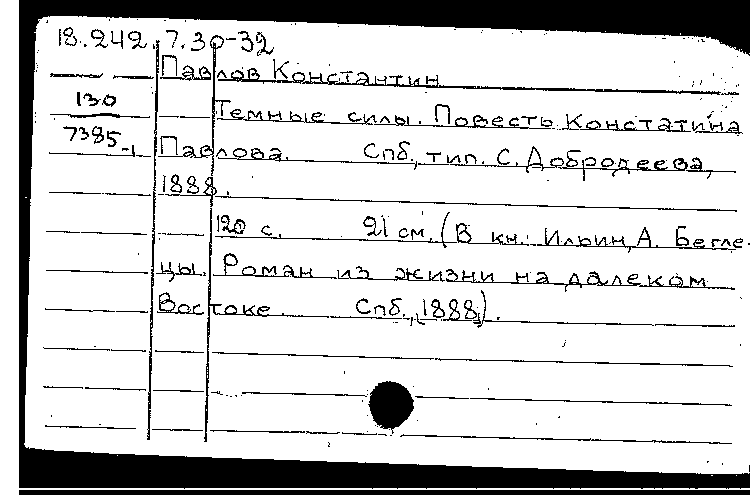 18.242.7.30-32
Павлов Константин
130
Темные силы. Повесть Констатина
7385-1 Павлова. Спб., тип. С. Добродеева,
1888.
120 с. 21 см. (В кн.: Ильин, А. Бегле-
цы. Роман из жизни на далеком
Востоке. Спб., [1888]).